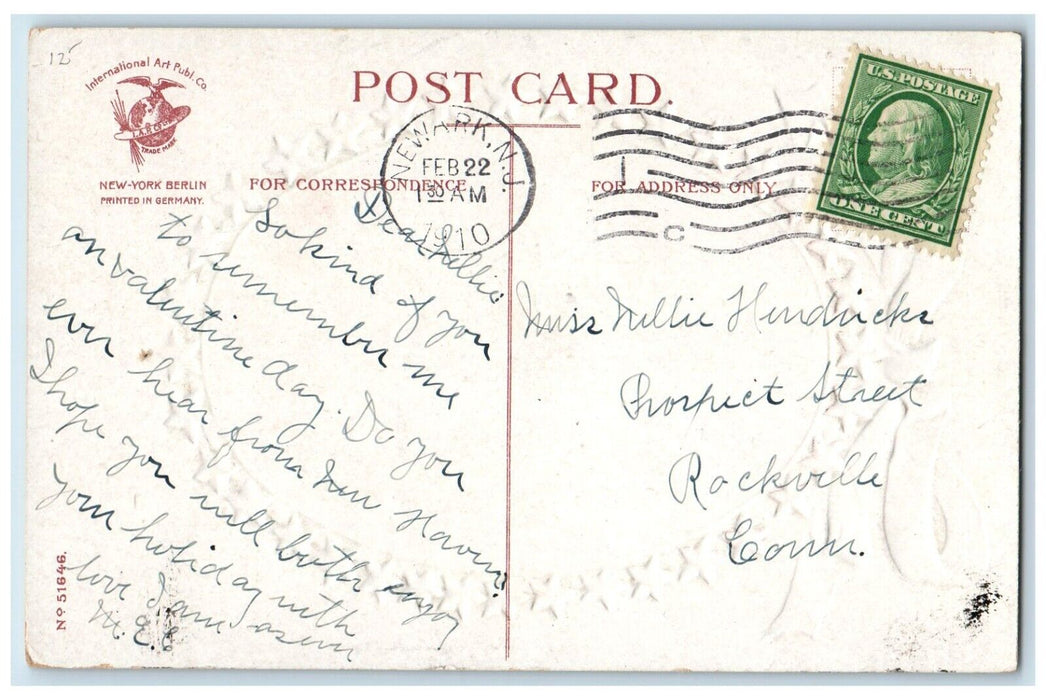 12
International Art Publ. Co.
I.A.P. Co.
TRADE MARK
NEW-YORK BERLIN
PRINTED IN GERMANY.
POST CARD.
NEWARK, N.J.
FEB 22
1 30 AM
1910
C
U.S. POSTAGE
ONE CENT
FOR CORRESPONDENCE
FOR ADDRESS ONLY
Dear Nellie
So kind of you
to remember me
on valentine day. Do you
ever hear from New Haven?
I hope you will both enjoy
your holiday with
love I am as ever
M. E.
Miss Nellie Hendricks
Prospect Street
Rockville
Conn.
No 51646.